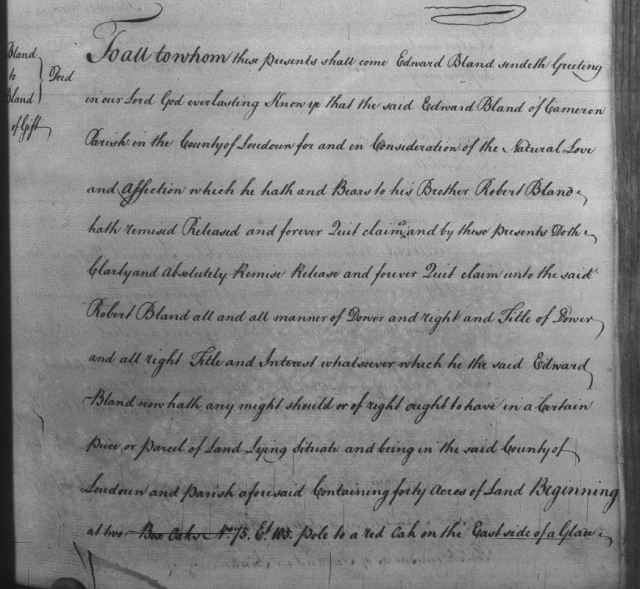 Bland
to
Bland
of Gift
Deed
To all to whom these presents shall come Edward Bland sendeth Greeting
in our Lord God everlasting Know ye that the said Edward Bland of Cameron
Parish in the County of Loudoun for and in Consideration of the Natural Love
and Affection which he hath and Bears to his Brother Robert Bland
hath remised Released and forever Quit claim'd and by these presents Doth
Clarly and absolutely Remise Release and forever Quit claim unto the said
Robert Bland all and all manner of Dower and right and Title of Dower
and all right Title and Interest whatsoever which he the said Edward
Bland now hath any might should or of right ought to have in a Certain
Piece or Parcel of Land Lying Situate and being in the said County of
Loudoun and Parish aforesaid Containing forty Acres of Land Beginning
at two Box Oaks No. 75. Et. 103. pole to a red Oak on the East side of a Glade